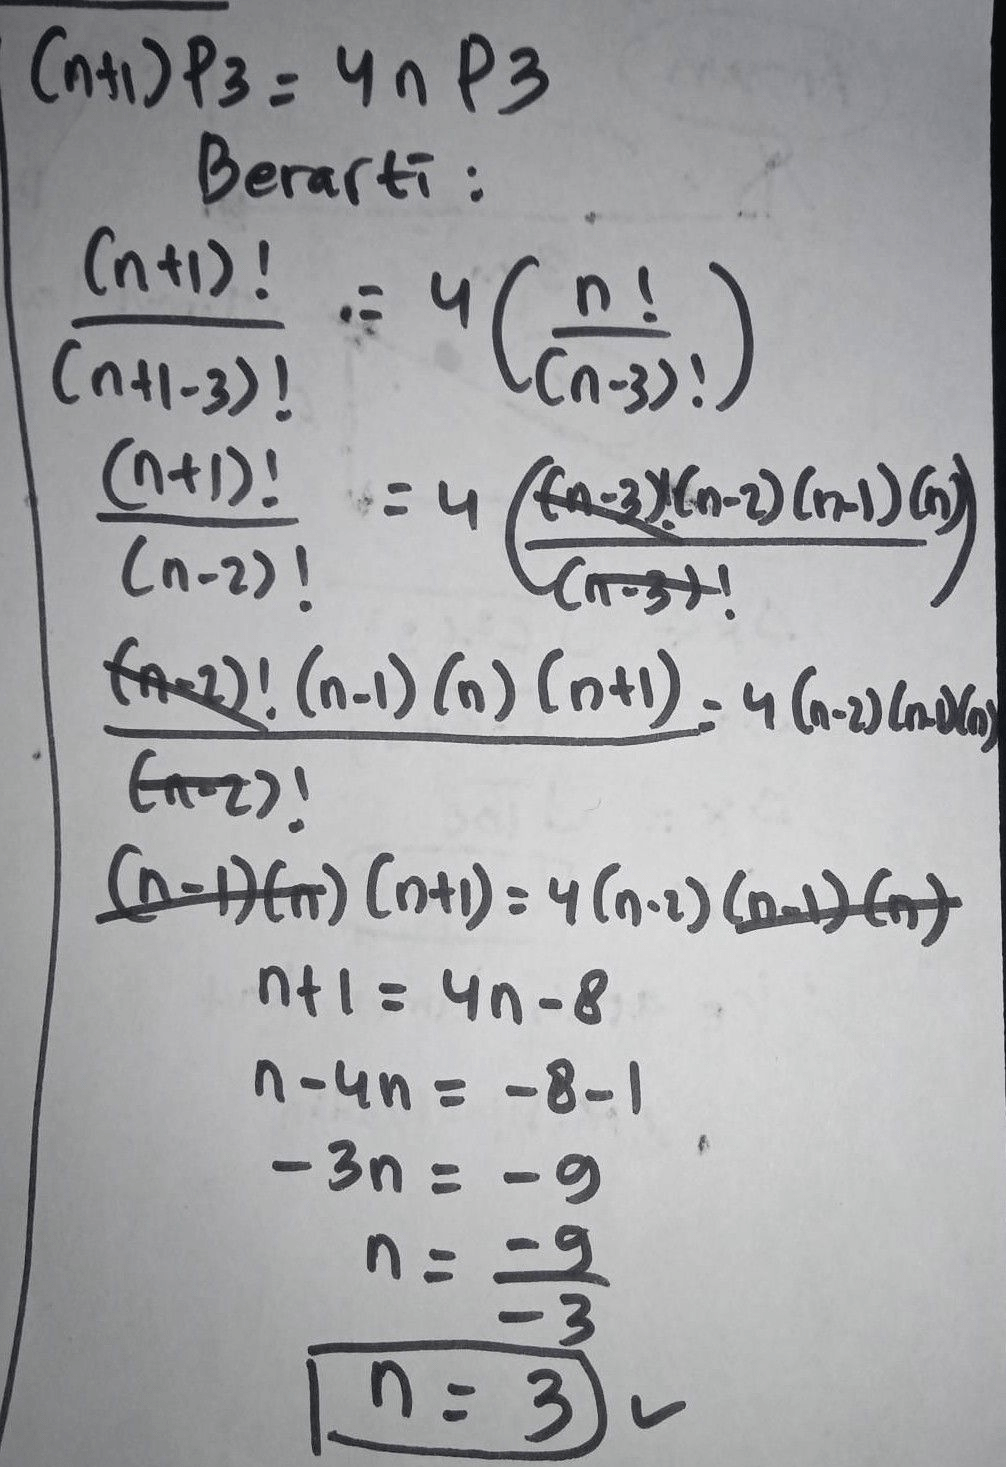 (n+1)P3 = 4n P3
Berarti :
(n+1)! / (n+1-3)! = 4 ( n! / (n-3)! )
(n+1)! / (n-2)! = 4 ( (n-3)! (n-2) (n-1) (n) / (n-3)! )
(n-2)! (n-1) (n) (n+1) / (n-2)! = 4 (n-2) (n-1) (n)
(n-1) (n) (n+1) = 4 (n-2) (n-1) (n)
n+1 = 4n - 8
n - 4n = -8 - 1
-3n = -9
n = -9 / -3
n = 3 ✓